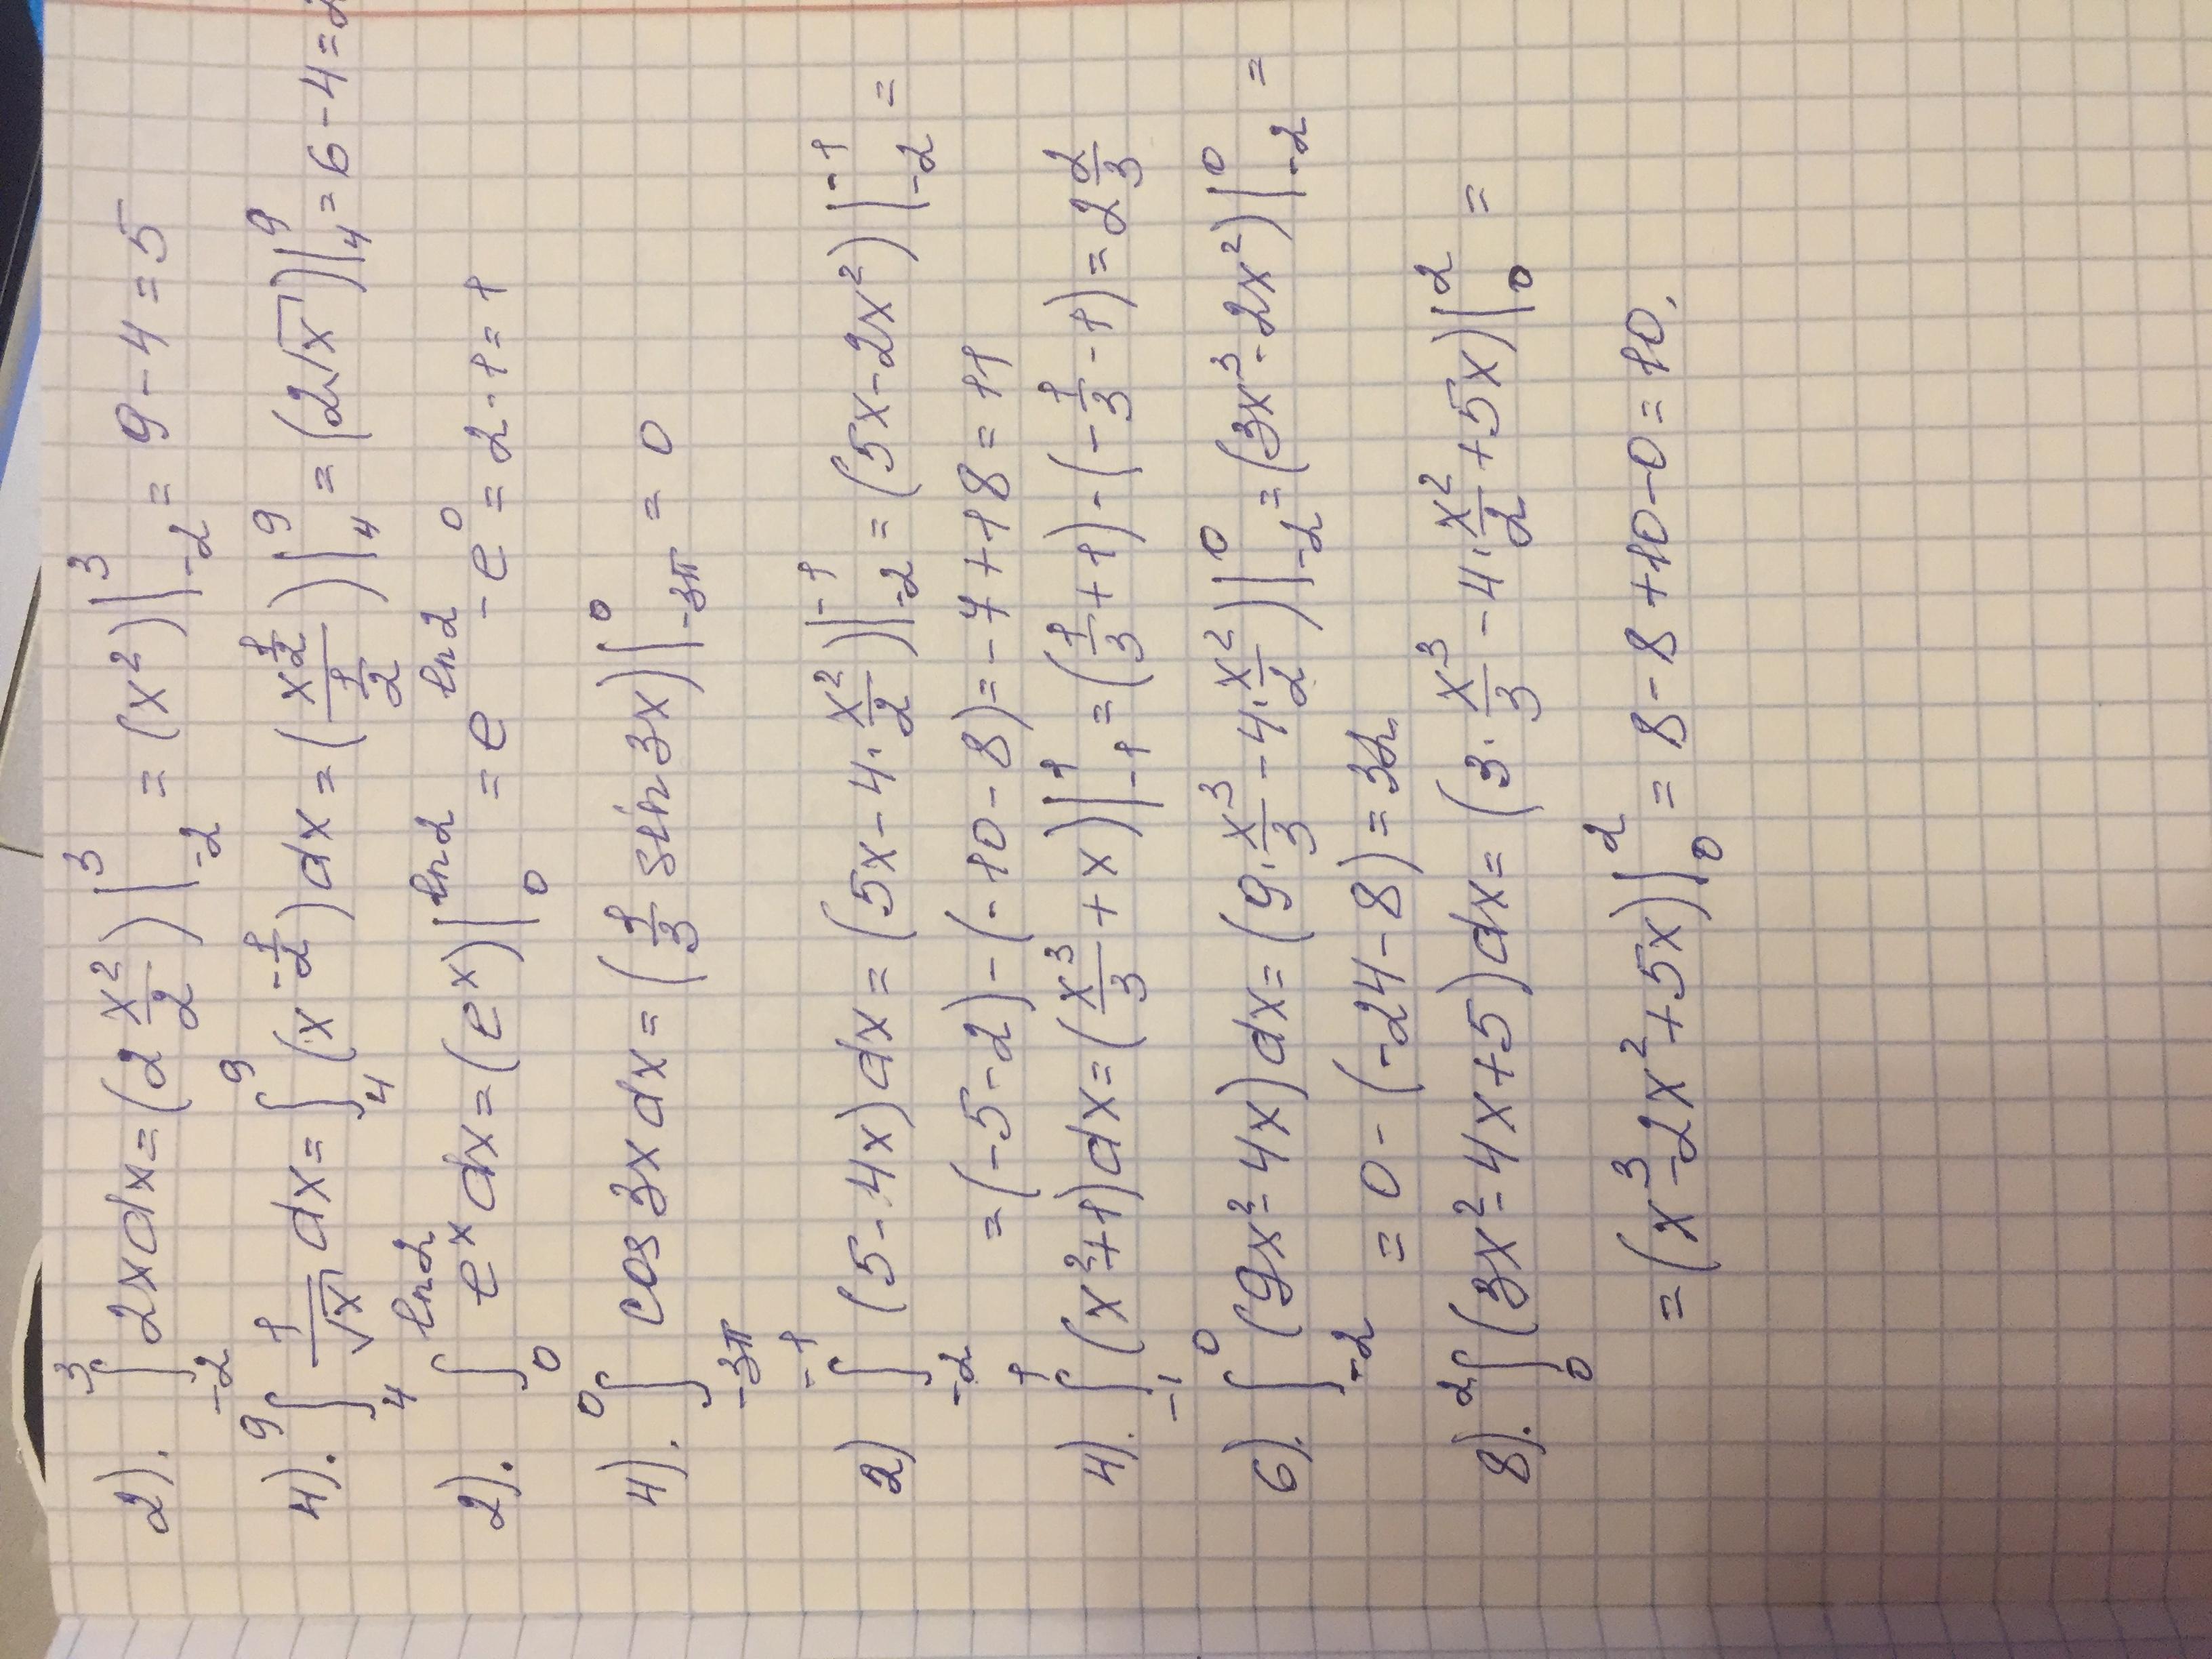 2). ∫₋₂³ 2x dx = (2 x²/2)|₋₂³ = (x²)|₋₂³ = 9 - 4 = 5
4). ∫₄⁹ 1/√x dx = ∫₄⁹ (x^(-1/2)) dx = (x^(1/2)/(1/2))|₄⁹ = (2√x)|₄⁹ = 6 - 4 = 2
2). ∫₀^(ln2) e^x dx = (e^x)|₀^(ln2) = e^(ln2) - e⁰ = 2 - 1 = 1
4). ∫₋₃π⁰ cos 3x dx = (1/3 sin 3x)|₋₃π⁰ = 0
2) ∫₋₂⁻¹ (5 - 4x) dx = (5x - 4 · x²/2)|₋₂⁻¹ = (5x - 2x²)|₋₂⁻¹ =
= (-5 - 2) - (-10 - 8) = -7 + 18 = 11
4). ∫₋₁¹ (x² + 1) dx = (x³/3 + x)|₋₁¹ = (1/3 + 1) - (-1/3 - 1) = 2 2/3
6). ∫₋₂⁰ (9x² - 4x) dx = (9 · x³/3 - 4 · x²/2)|₋₂⁰ = (3x³ - 2x²)|₋₂⁰ =
= 0 - (-24 - 8) = 32
8). ∫₀² (3x² - 4x + 5) dx = (3 · x³/3 - 4 · x²/2 + 5x)|₀² =
= (x³ - 2x² + 5x)|₀² = 8 - 8 + 10 - 0 = 10.